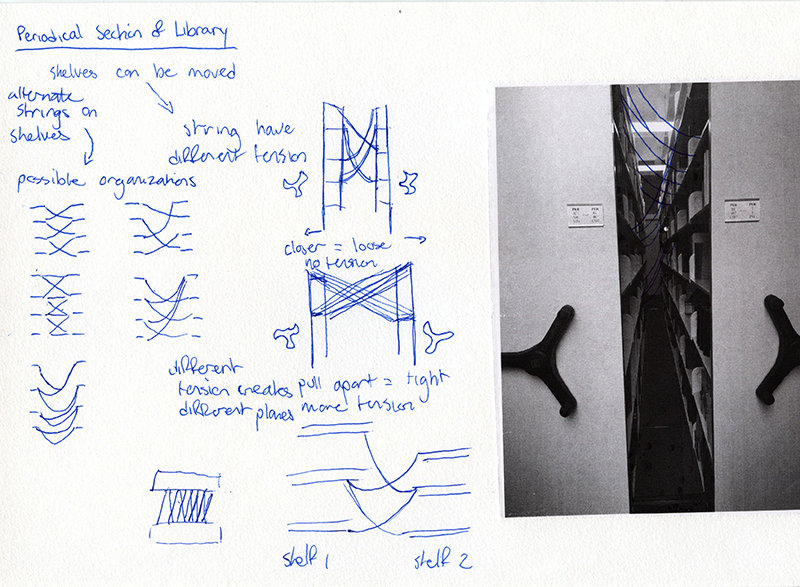 Periodical Section of Library
shelves can be moved
alternate
strings on
shelves
string have
different tension
possible organizations
closer = loose
no tension
different
tension creates
different planes
pull apart = tight
more tension
shelf 1
shelf 2
PER
PER